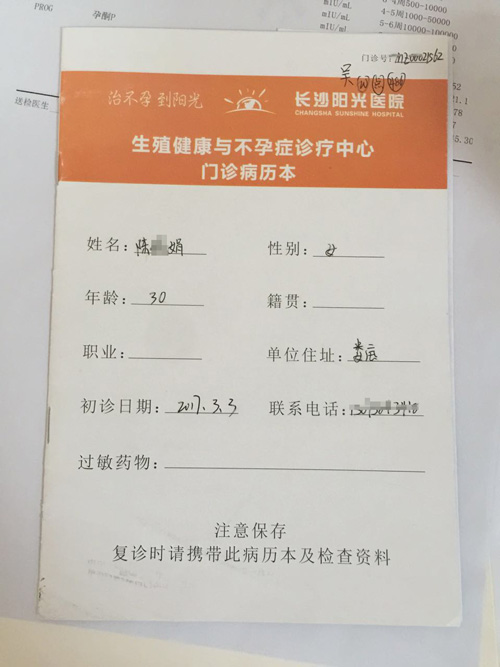 PROG 孕酮P
mIU/mL
3-4周500-10000
mIU/mL 4-5周1000-50000
mIU/mL 5-6周10000-100000
送检医生
门诊号:
治不孕 到阳光 长沙阳光医院
CHANGSHA SUNSHINE HOSPITAL
生殖健康与不孕症诊疗中心
门诊病历本
姓名: 陈 娟 性别: 女
年龄: 30 籍贯:
职业: 单位住址: 娄底
初诊日期: 2017.3.3 联系电话:
过敏药物:
注意保存
复诊时请携带此病历本及检查资料